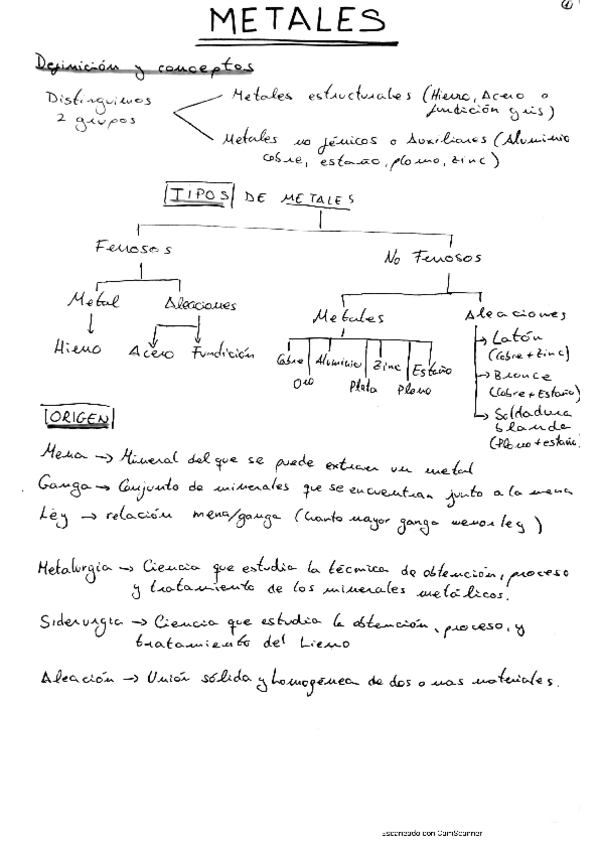 1
METALES
Definición y conceptos
Distinguimos
2 grupos
Metales estructurales (Hierro, Acero o
fundición gris)
Metales no férricos o Auxiliares (Aluminio
cobre, estaño, plomo, zinc)
TIPOS DE METALES
Ferrosos
No Ferrosos
Metal
Aleaciones
Metales
Aleaciones
Hierro
Acero
Fundición
Cobre
Oro
Aluminio
Plata
Zinc
Plomo
Estaño
Latón
(Cobre + zinc)
Bronce
(Cobre + Estaño)
Soldadura
blanda
(Plomo + estaño)
ORIGEN
Mena → Mineral del que se puede extraer un metal
Ganga → Conjunto de minerales que se encuentran junto a la mena
Ley → relación mena/ganga (Cuanto mayor ganga menor ley)
Metalurgia → Ciencia que estudia la técnica de obtención, proceso
y tratamiento de los minerales metálicos.
Siderurgia → Ciencia que estudia la obtención, proceso, y
tratamiento del hierro
Aleación → Unión sólida y homogénea de dos o mas materiales.
Escaneado con CamScanner